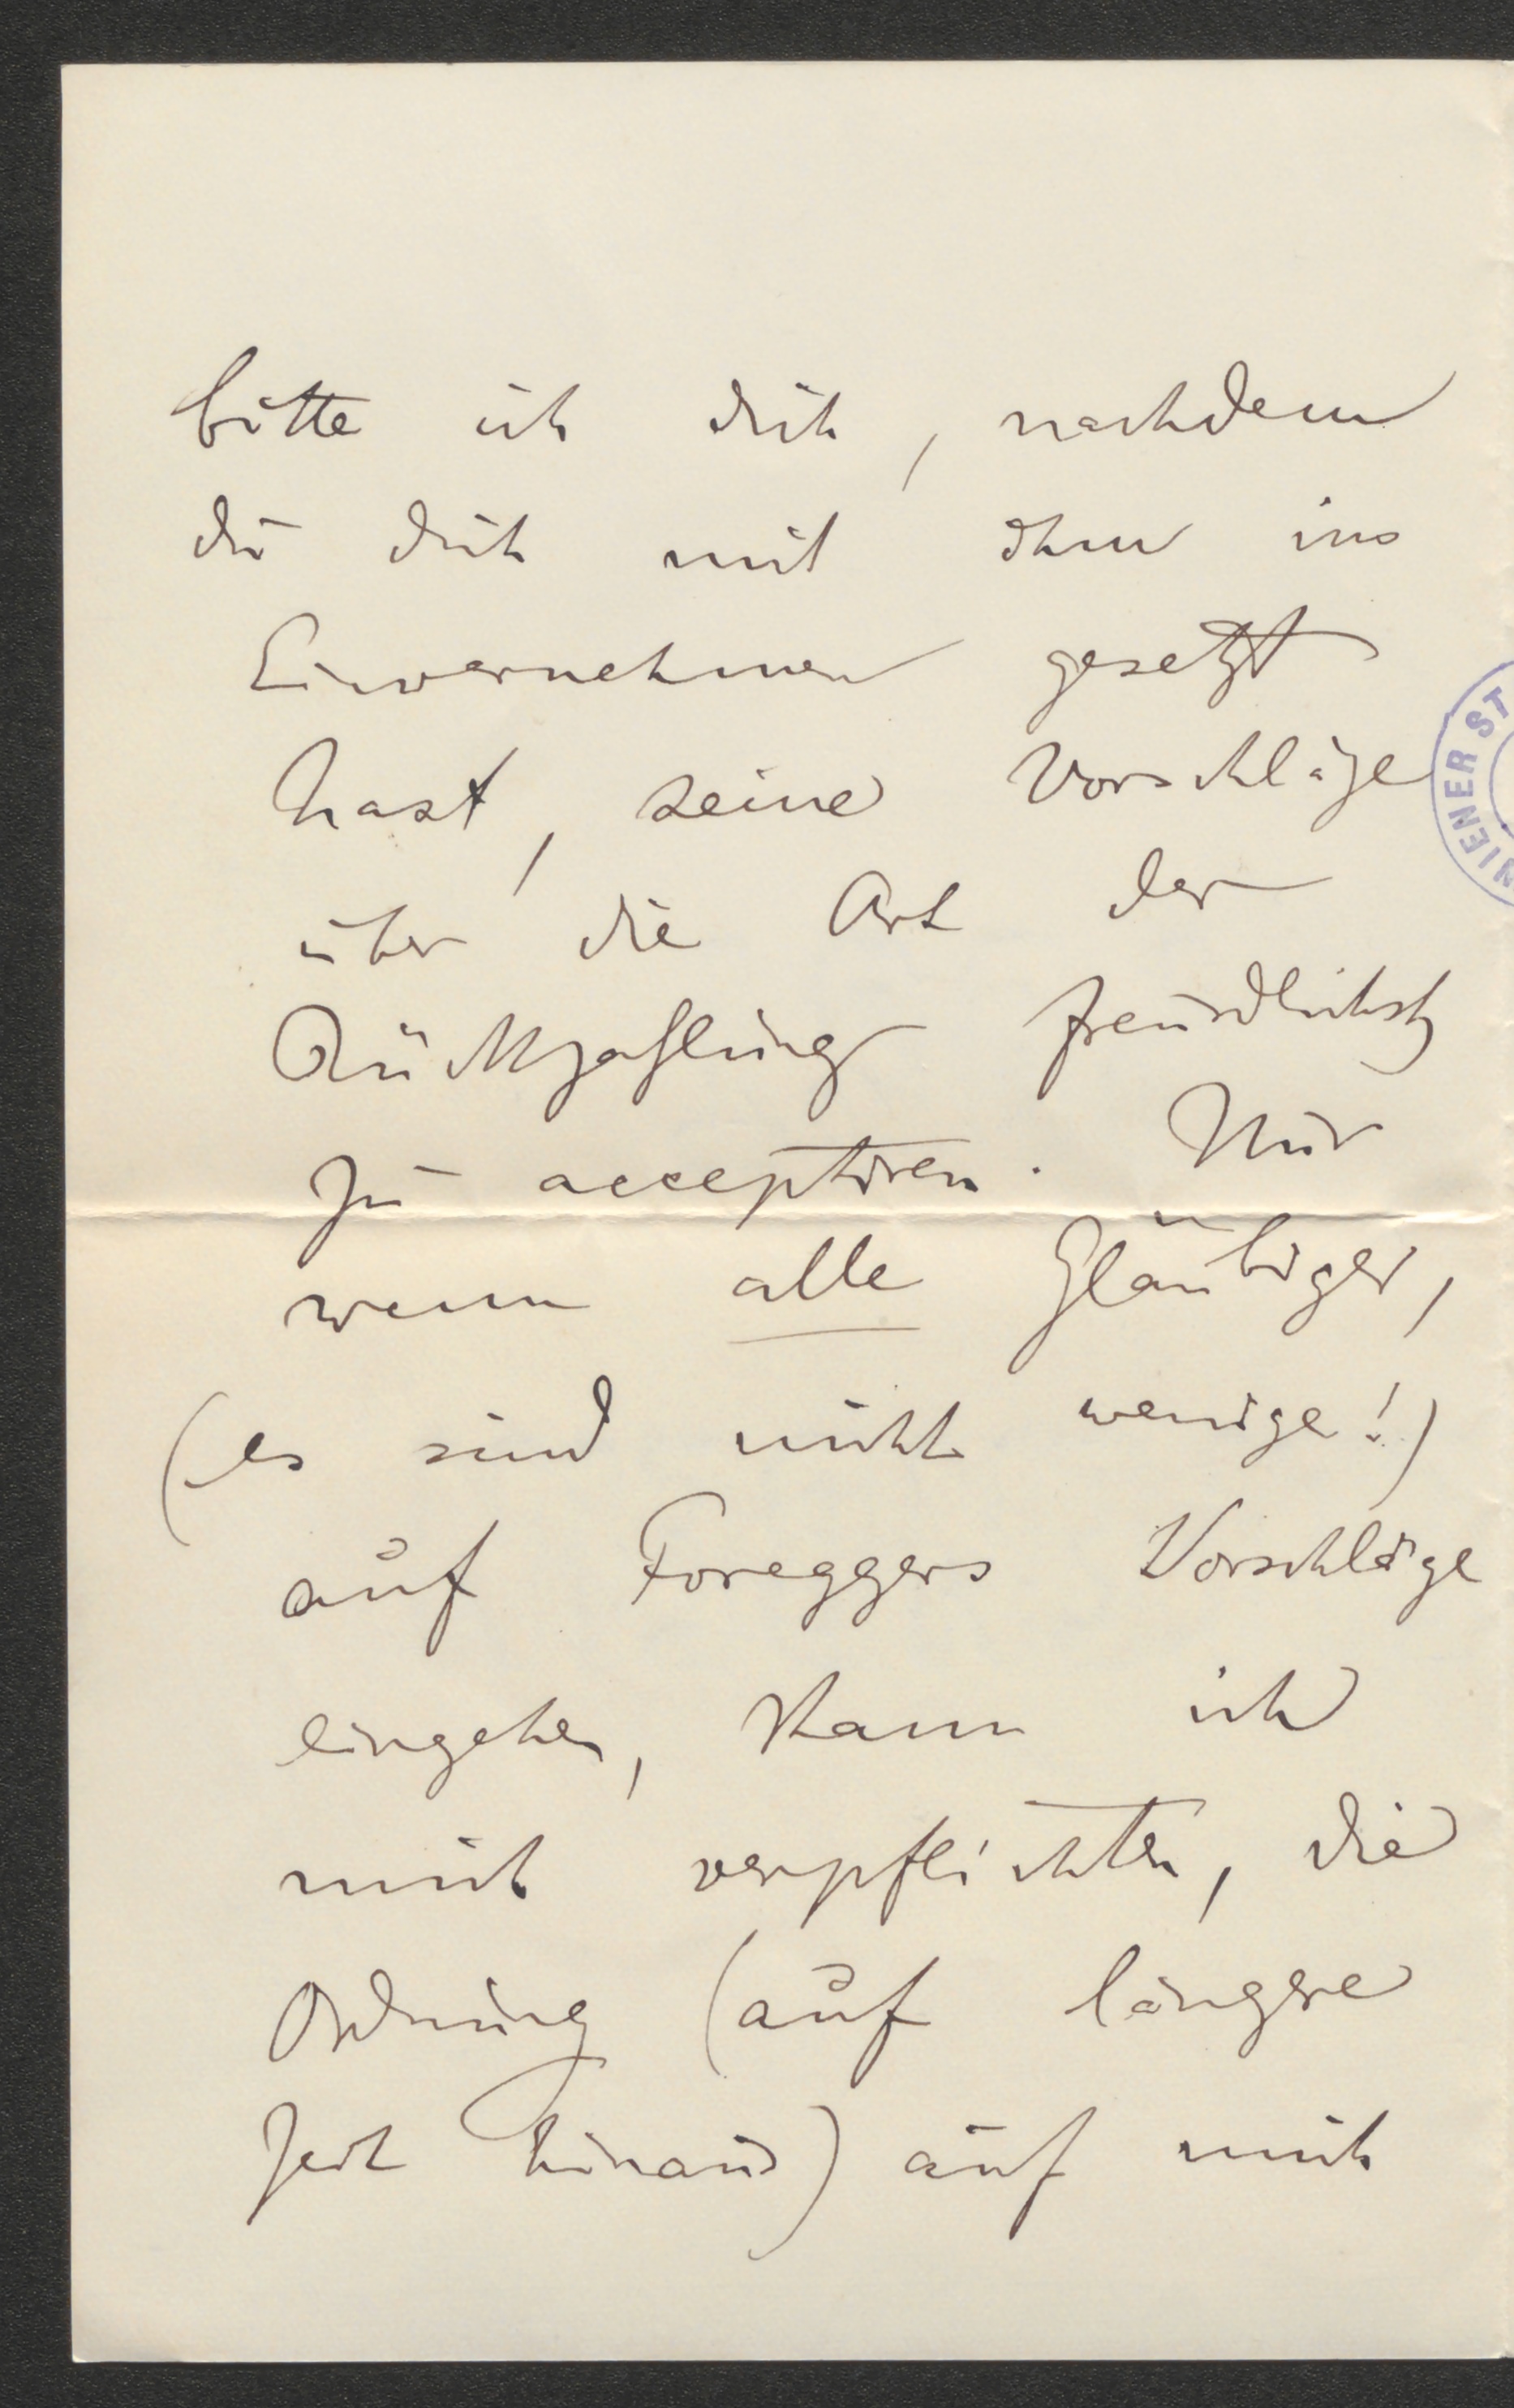 bitte ich dich, nachdem
du dich mit ihm ins
Einvernehmen gesetzt
hast, seine Vorschläge
über die Art der
Rückzahlung freundlichst
zu acceptiren. Nur
wenn alle Gläubiger,
(es sind nicht wenige!)
auf Foreggers Vorschläge
eingehen, kann ich
mich verpflichten, die
Ordnung (auf längere
Zeit hinaus) auf mich
WIENER ST